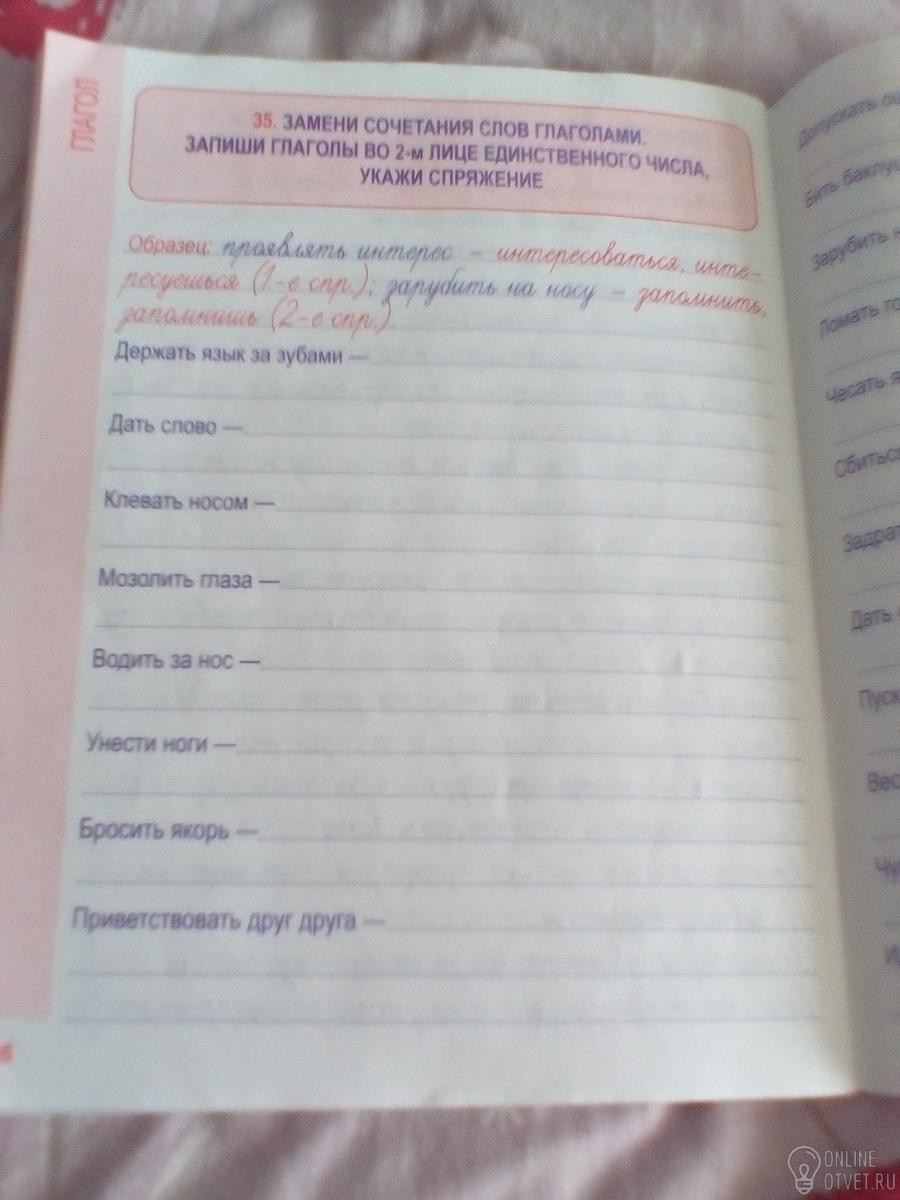 ГЛАГОЛ
35. ЗАМЕНИ СОЧЕТАНИЯ СЛОВ ГЛАГОЛАМИ.
ЗАПИШИ ГЛАГОЛЫ ВО 2-м ЛИЦЕ ЕДИНСТВЕННОГО ЧИСЛА,
УКАЖИ СПРЯЖЕНИЕ
Образец: проявлять интерес – интересоваться, инте-
ресуешься (1-е спр.); зарубить на носу – запомнить,
запомнишь (2-е спр.).
Держать язык за зубами —
Дать слово —
Клевать носом —
Мозолить глаза —
Водить за нос —
Унести ноги —
Бросить якорь —
Приветствовать друг друга —
Допускать
Бить
Зарубить
Ломать
Чесать
Дать
ONLINE
OTVET.RU